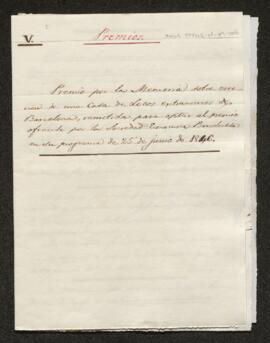 V.
Premios.
Premio por la Memoria sobre crea-
cion de una Casa de Locos extramuros de
Barcelona, remitida para optar al premio
ofrecido por la Sociedad Económica Barcelonesa
en su programa de 25 de Junio de 1846.